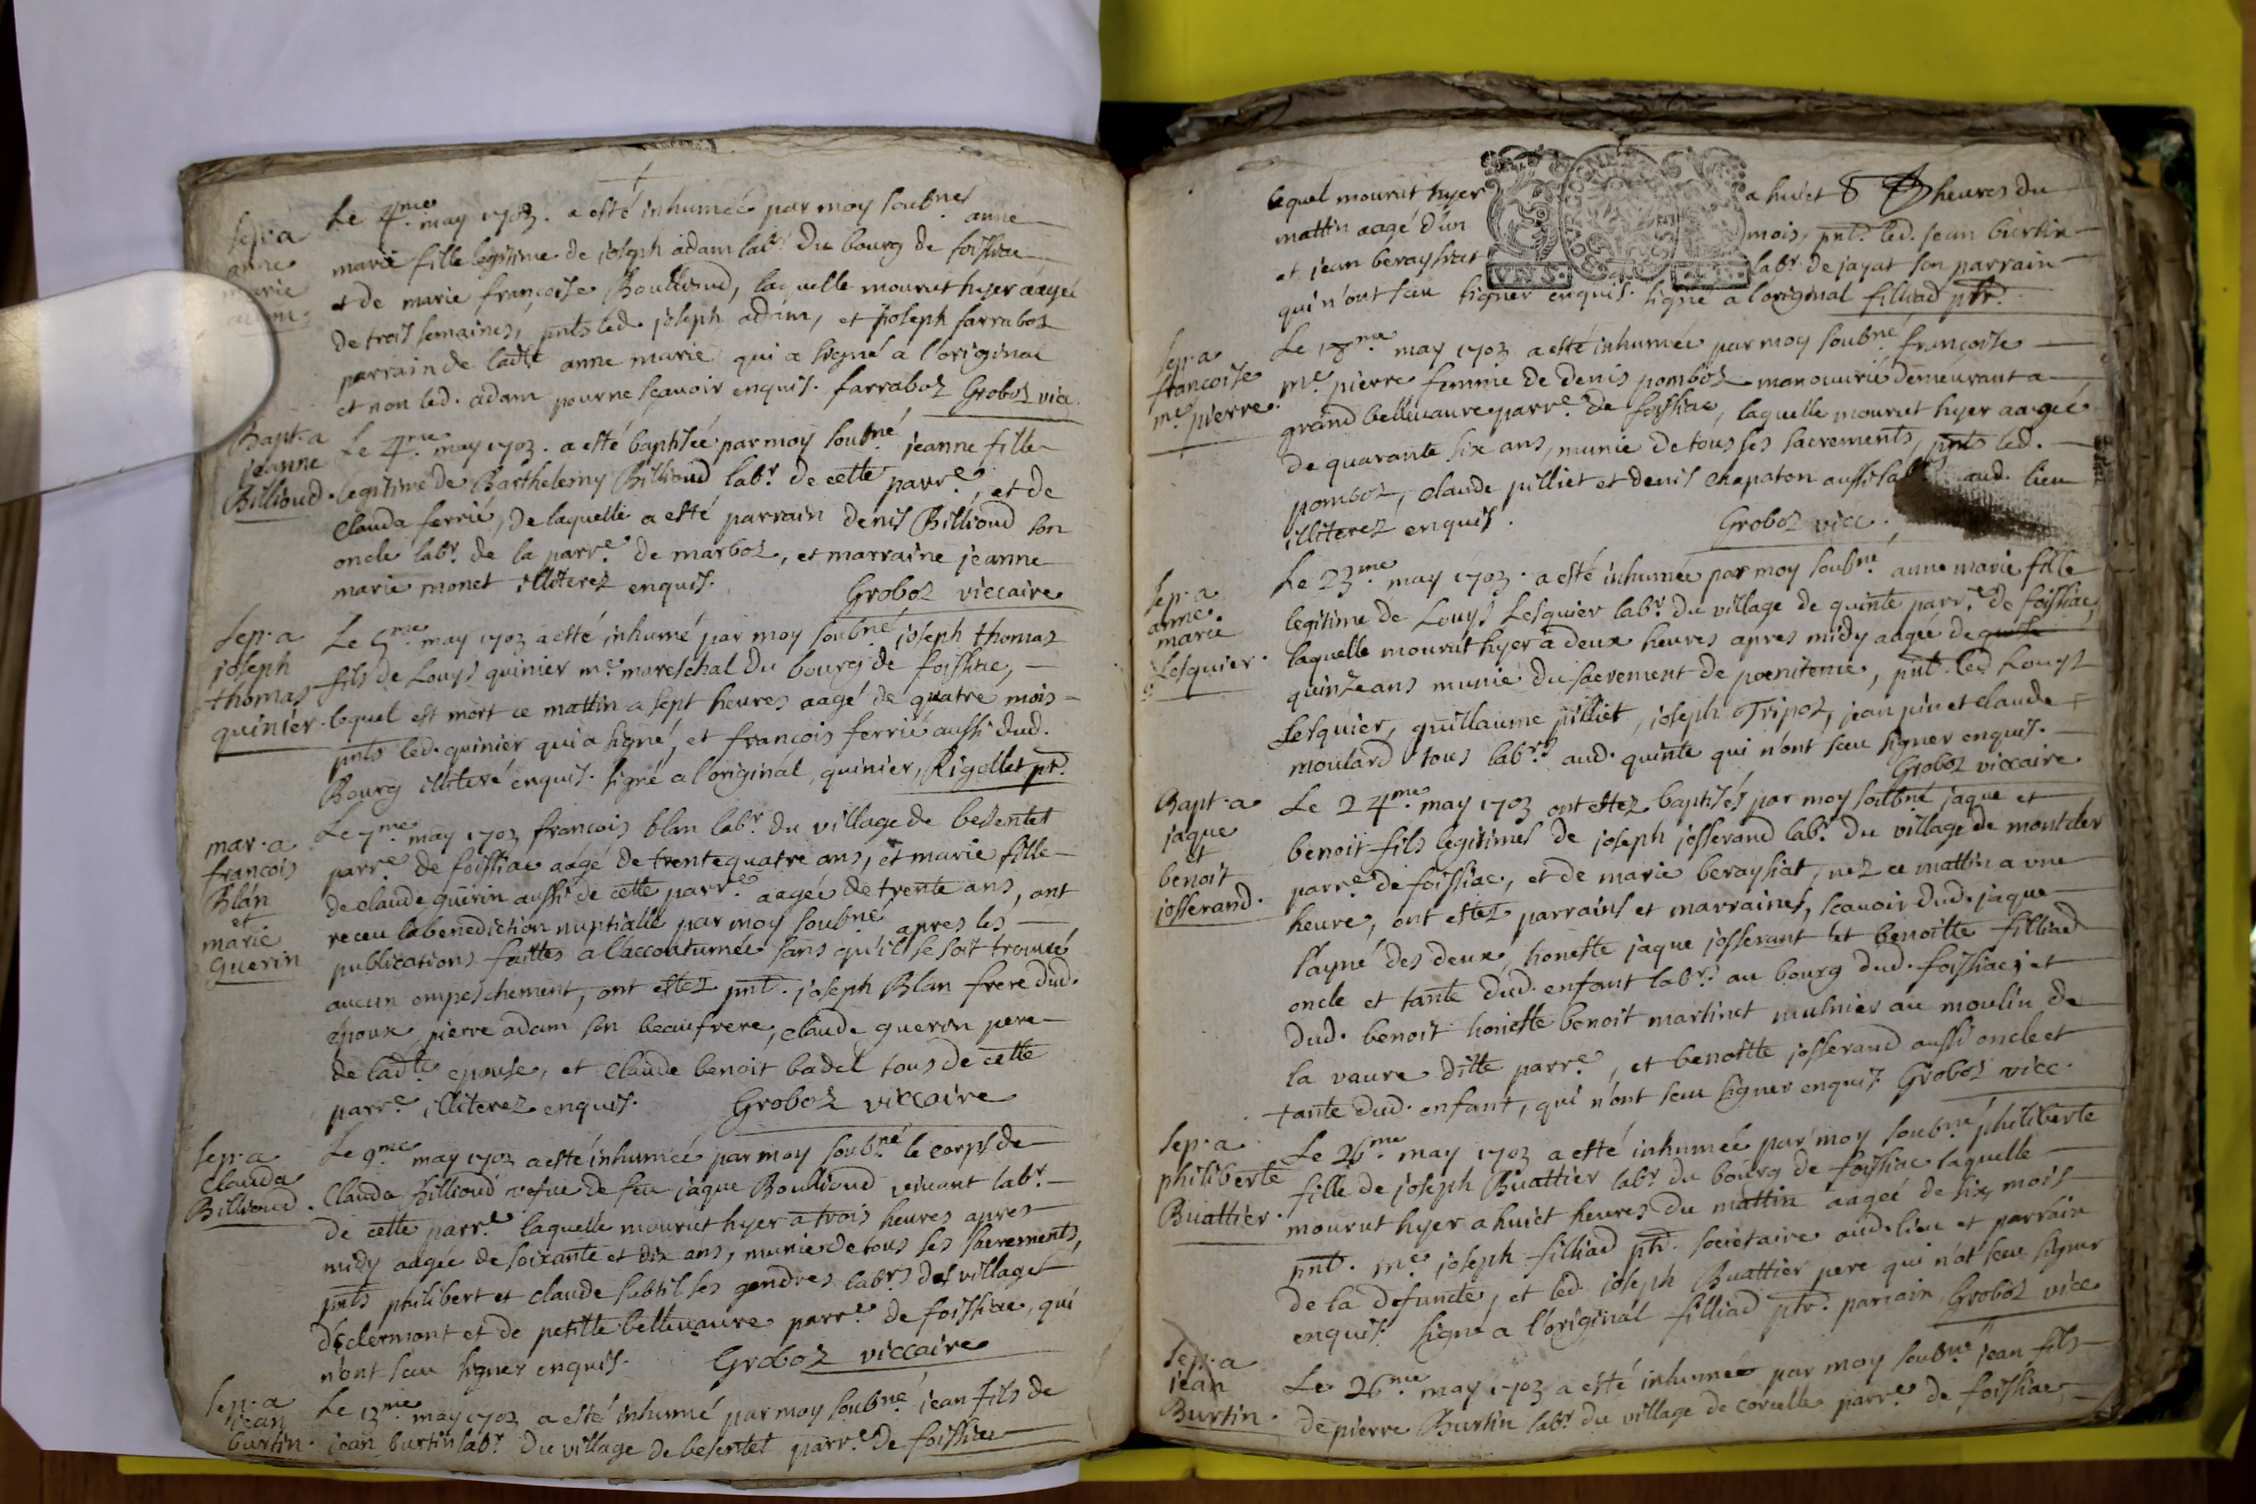 Sep.a
anne
marie
Le 4.me may 1703. a esté inhumée par moy soub.né anne
marie fille legitime de joseph adam lab.r du bourg de foissiac
et de marie françoise Boullioud, laquelle mourut hyer aagée
de trois semaines, pnts led. joseph adam, et joseph farraboz
parrain de ladte anne marie qui a signé a l'original
et non led. adam pour ne sçavoir enquis. farraboz Groboz vicc.
Bapt.a
jeanne
Billioud.
Le 4.me may 1703. a esté baptisée par moy soubné jeanne fille
legitime de Barthelemy Billioud lab.r de cette parr.e, et de
Clauda ferrié, de laquelle a esté parrain denis Billioud son
oncle lab.r de la parr.e de marboz, et marraine jeanne
marie monet illiterez enquis. Groboz viccaire
Sep.a
joseph
thomas
quinier.
Le 5.me may 1703 a esté inhumé par moy soubné joseph thomas
fils de Louys quinier m.e mareschal du bourg de foissiac,
lequel est mort ce mattin a sept heures aagé de quatre mois
pnts led. quinier qui a signé, et françois ferrié aussi dud.
Bourg illiteré enquis. signé a l'original, quinier, Rigollet ptr.
mar.a
françois
Blan
et
marie
Guerin
Le 7.me may 1703 françois blan lab.r du village de besentet
parr.e de foissiac aagé de trente quatre ans, et marie fille
de claude guerin aussi de cette parr.e aagée de trente ans, ont
receu la benediction nuptialle par moy soubné apres les
publications faittes a l'accoutumée sans qu'il se soit trouvé
aucun empeschement, ont estez pnt. joseph Blan frere dud.
epoux, pierre adam son beaufrere, claude gueron pere
de ladte epouse, et claude benoit badel tous de cette
parr.e illiterez enquis. Groboz viccaire
Sep.a
Clauda
Billioud.
Le 9.me may 1703 a esté inhumée par moy soub.né le corps de
Clauda billioud vefue de feu jaque Boullioud vivant lab.r
de cette parr.e laquelle mourut hyer a trois heures apres
midy aagée de soixante et dix ans, munie de tous ses sacrements,
pnts philibert et claude subtil ses gendres lab.rs des villages
de clermont et de petitte bellevaure parr.e de foissiac, qui
n'ont sceu signer enquis. Groboz viccaire
Sep.a
jean
burtin.
Le 13.me may 1703 a esté inhumé par moy soubné jean fils de
jean burtin lab.r du village de besentet parr.e de foissiac
lequel mourut hyer a huict 8 heures du
mattin aagé d'un mois, pnt. led. jean burtin
et jean beraysiat lab.r de jayat son parrain
qui n'ont sceu signer enquis. signé a l'original filliad ptr.
Sep.a
françoise
m.e pierre.
Le 18.me may 1703 a esté inhumée par moy soubné françoise
m.e pierre femme de denis pomboz manouvrié demeurant a
grand bellevaure parr.e de foissiac, laquelle mourut hyer aagée
de quarante six ans, munie de tous ses sacrements, pnts led.
pomboz, claude pilliet et denis chapaton aussi lab. aud. lieu
illiterez enquis. Groboz vicc.
Sep.a
anne
marie
Lesquier.
Le 23.me may 1703. a esté inhumée par moy soubné anne marie fille
legitime de Louys Lesquier lab.r du village de quinte parr.e de foissiac,
laquelle mourut hyer a deux heures apres midy aagée de
quinze ans munie du sacrement de poenitence, pnt. led Louys
Lesquier, guillaume pilliet, joseph Tripoz, jean pin et claude
moulard tous lab.rs aud. quinte qui n'ont sceu signer enquis.
Groboz viccaire
Bapt.a
jaque
et
benoit
josserand.
Le 24.me may 1703 ont estez baptisés par moy soubné jaque et
benoit fils legitimes de joseph josserand lab.r du village de montcler
parr.e de foissiac, et de marie beraysiat, nez ce mattin a vne
heure, ont estez parrains et marraines, scavoir dud. jaque
l'ayné des deux honeste jaque josserant et benoitte filliad
oncle et tante dud. enfant lab.rs au bourg dud. foissiac, et
dud. benoit honeste benoit martinet mulnier au moulin de
la vaure ditte parr.e, et benoitte josserand aussi oncle et
tante dud. enfant, qui n'ont sceu signer enquis Groboz vicc.
Sep.a
philiberte
Buattier.
Le 26.me may 1703 a esté inhumée par moy soubné philiberte
fille de joseph Buattier lab.r du bourg de foissiac laquelle
mourut hyer a huict heures du mattin aageé de six mois
pnt. m.e joseph filliad ptr. societaire aud. lieu et parrain
de la defuncte, et led. joseph Buattier pere qui n'at sceu signer
enquis. signé a l'original filliad ptr. parrain Groboz vicc
Sep.a
jean
Burtin.
Le 26.me may 1703 a esté inhumée par moy soubné jean fils
de pierre Burtin lab.r du village de corcelle parr.e de foissiac,